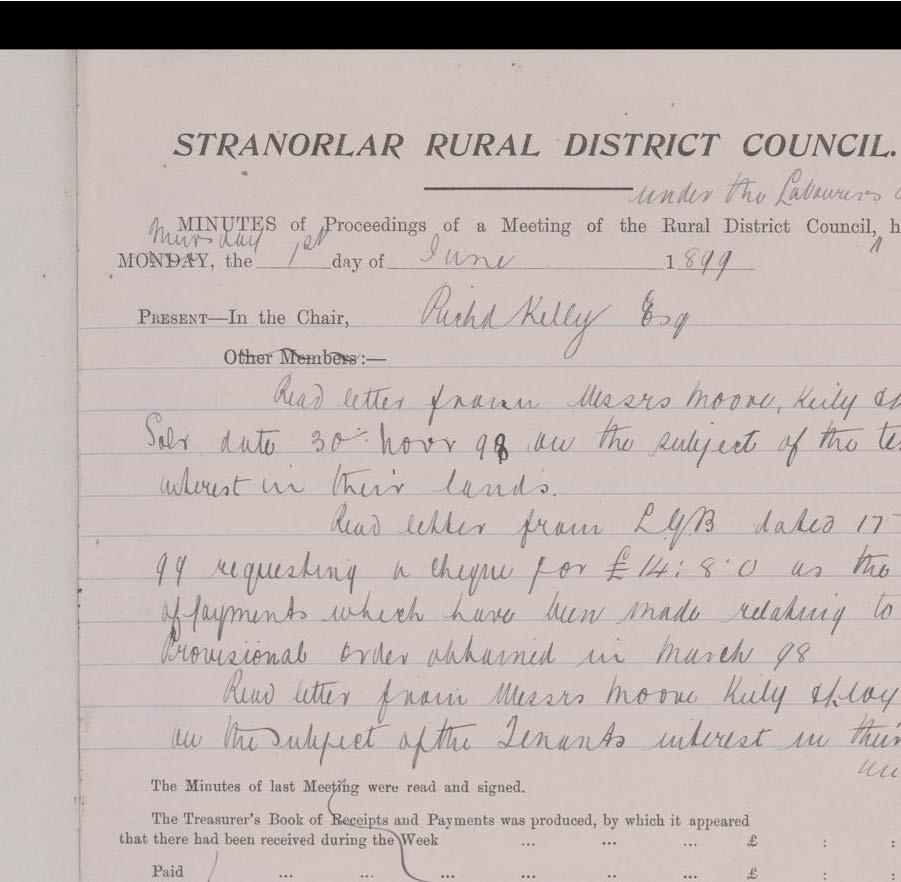 STRANORLAR RURAL DISTRICT COUNCIL.
under the Labourers
MINUTES of Proceedings of a Meeting of the Rural District Council, h
Thursday
MONDAY, the 1st day of June 1899
PRESENT—In the Chair, Richd Kelly Esq
Other Members:—
Read letter from Messrs Moore, Keily &
Solr date 30th Novr 98 on the subject of the te
interest in their lands.
Read letter from LGB dated 17
99 requesting a cheque for £14:8:0 as the
of payments which have been made relating to
Provisional order obtained in March 98
Read letter from Messrs Moore Keily & Lloy
on the subject of the Tenants interest in their
The Minutes of last Meeting were read and signed.
The Treasurer's Book of Receipts and Payments was produced, by which it appeared
that there had been received during the Week ... ... ... £ : :
Paid ... ... ... ... ... ... £ : :